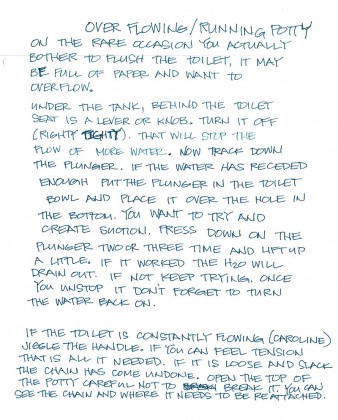 OVER FLOWING/RUNNING POTTY
ON THE RARE OCCASION YOU ACTUALLY
BOTHER TO FLUSH THE TOILET, IT MAY
BE FULL OF PAPER AND WANT TO
OVERFLOW.
UNDER THE TANK, BEHIND THE TOILET
SEAT IS A LEVER OR KNOB. TURN IT OFF
(RIGHTY TIGHTY). THAT WILL STOP THE
FLOW OF MORE WATER. NOW TRACK DOWN
THE PLUNGER. IF THE WATER HAS RECEDED
ENOUGH PUT THE PLUNGER IN THE TOILET
BOWL AND PLACE IT OVER THE HOLE IN
THE BOTTOM. YOU WANT TO TRY AND
CREATE SUCTION. PRESS DOWN ON THE
PLUNGER TWO OR THREE TIME AND LIFT UP
A LITTLE. IF IT WORKED THE H2O WILL
DRAIN OUT. IF NOT KEEP TRYING. ONCE
YOU UNSTOP IT DON'T FORGET TO TURN
THE WATER BACK ON.
IF THE TOILET IS CONSTANTLY FLOWING (CAROLINE)
JIGGLE THE HANDLE. IF YOU CAN FEEL TENSION
THAT IS ALL IT NEEDED. IF IT IS LOOSE AND SLACK
THE CHAIN HAS COME UNDONE. OPEN THE TOP OF
THE POTTY CAREFUL NOT TO BREAK IT. YOU CAN
SEE THE CHAIN AND WHERE IT NEEDS TO BE REATTACHED.